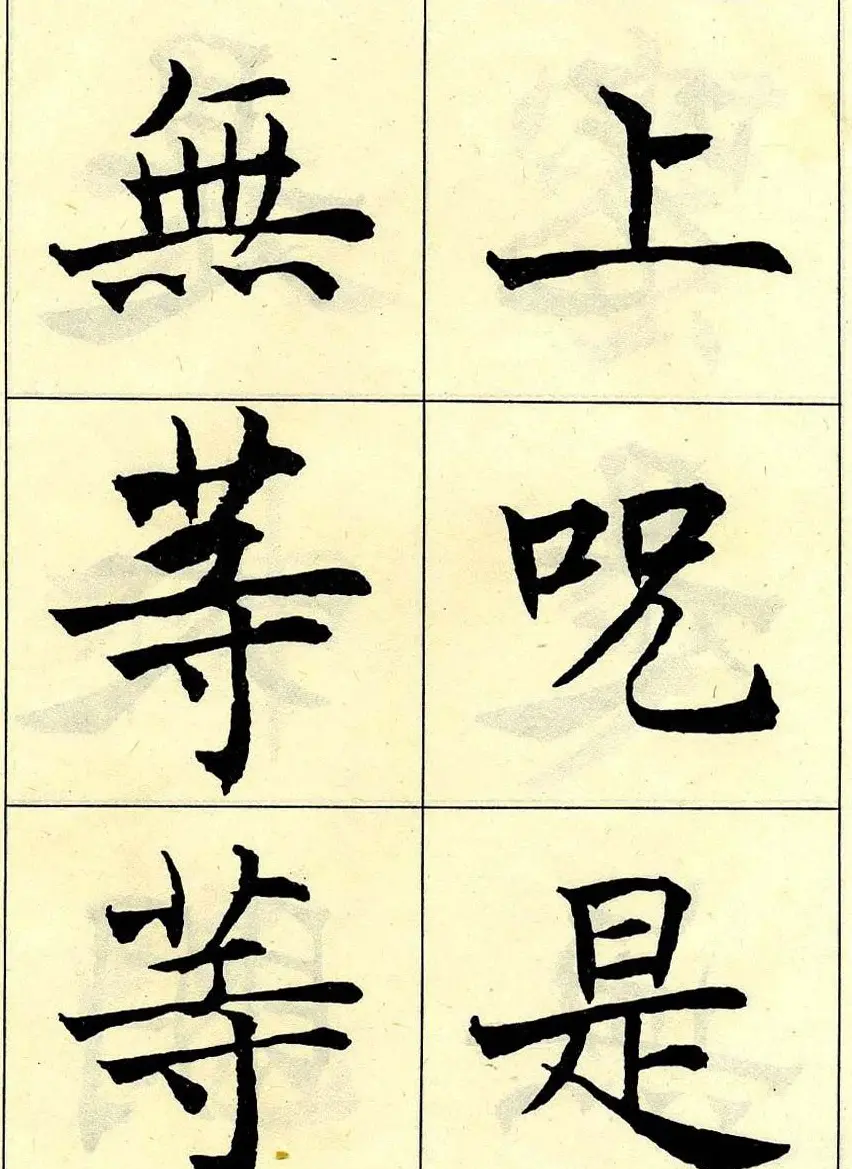 上咒是
無等等